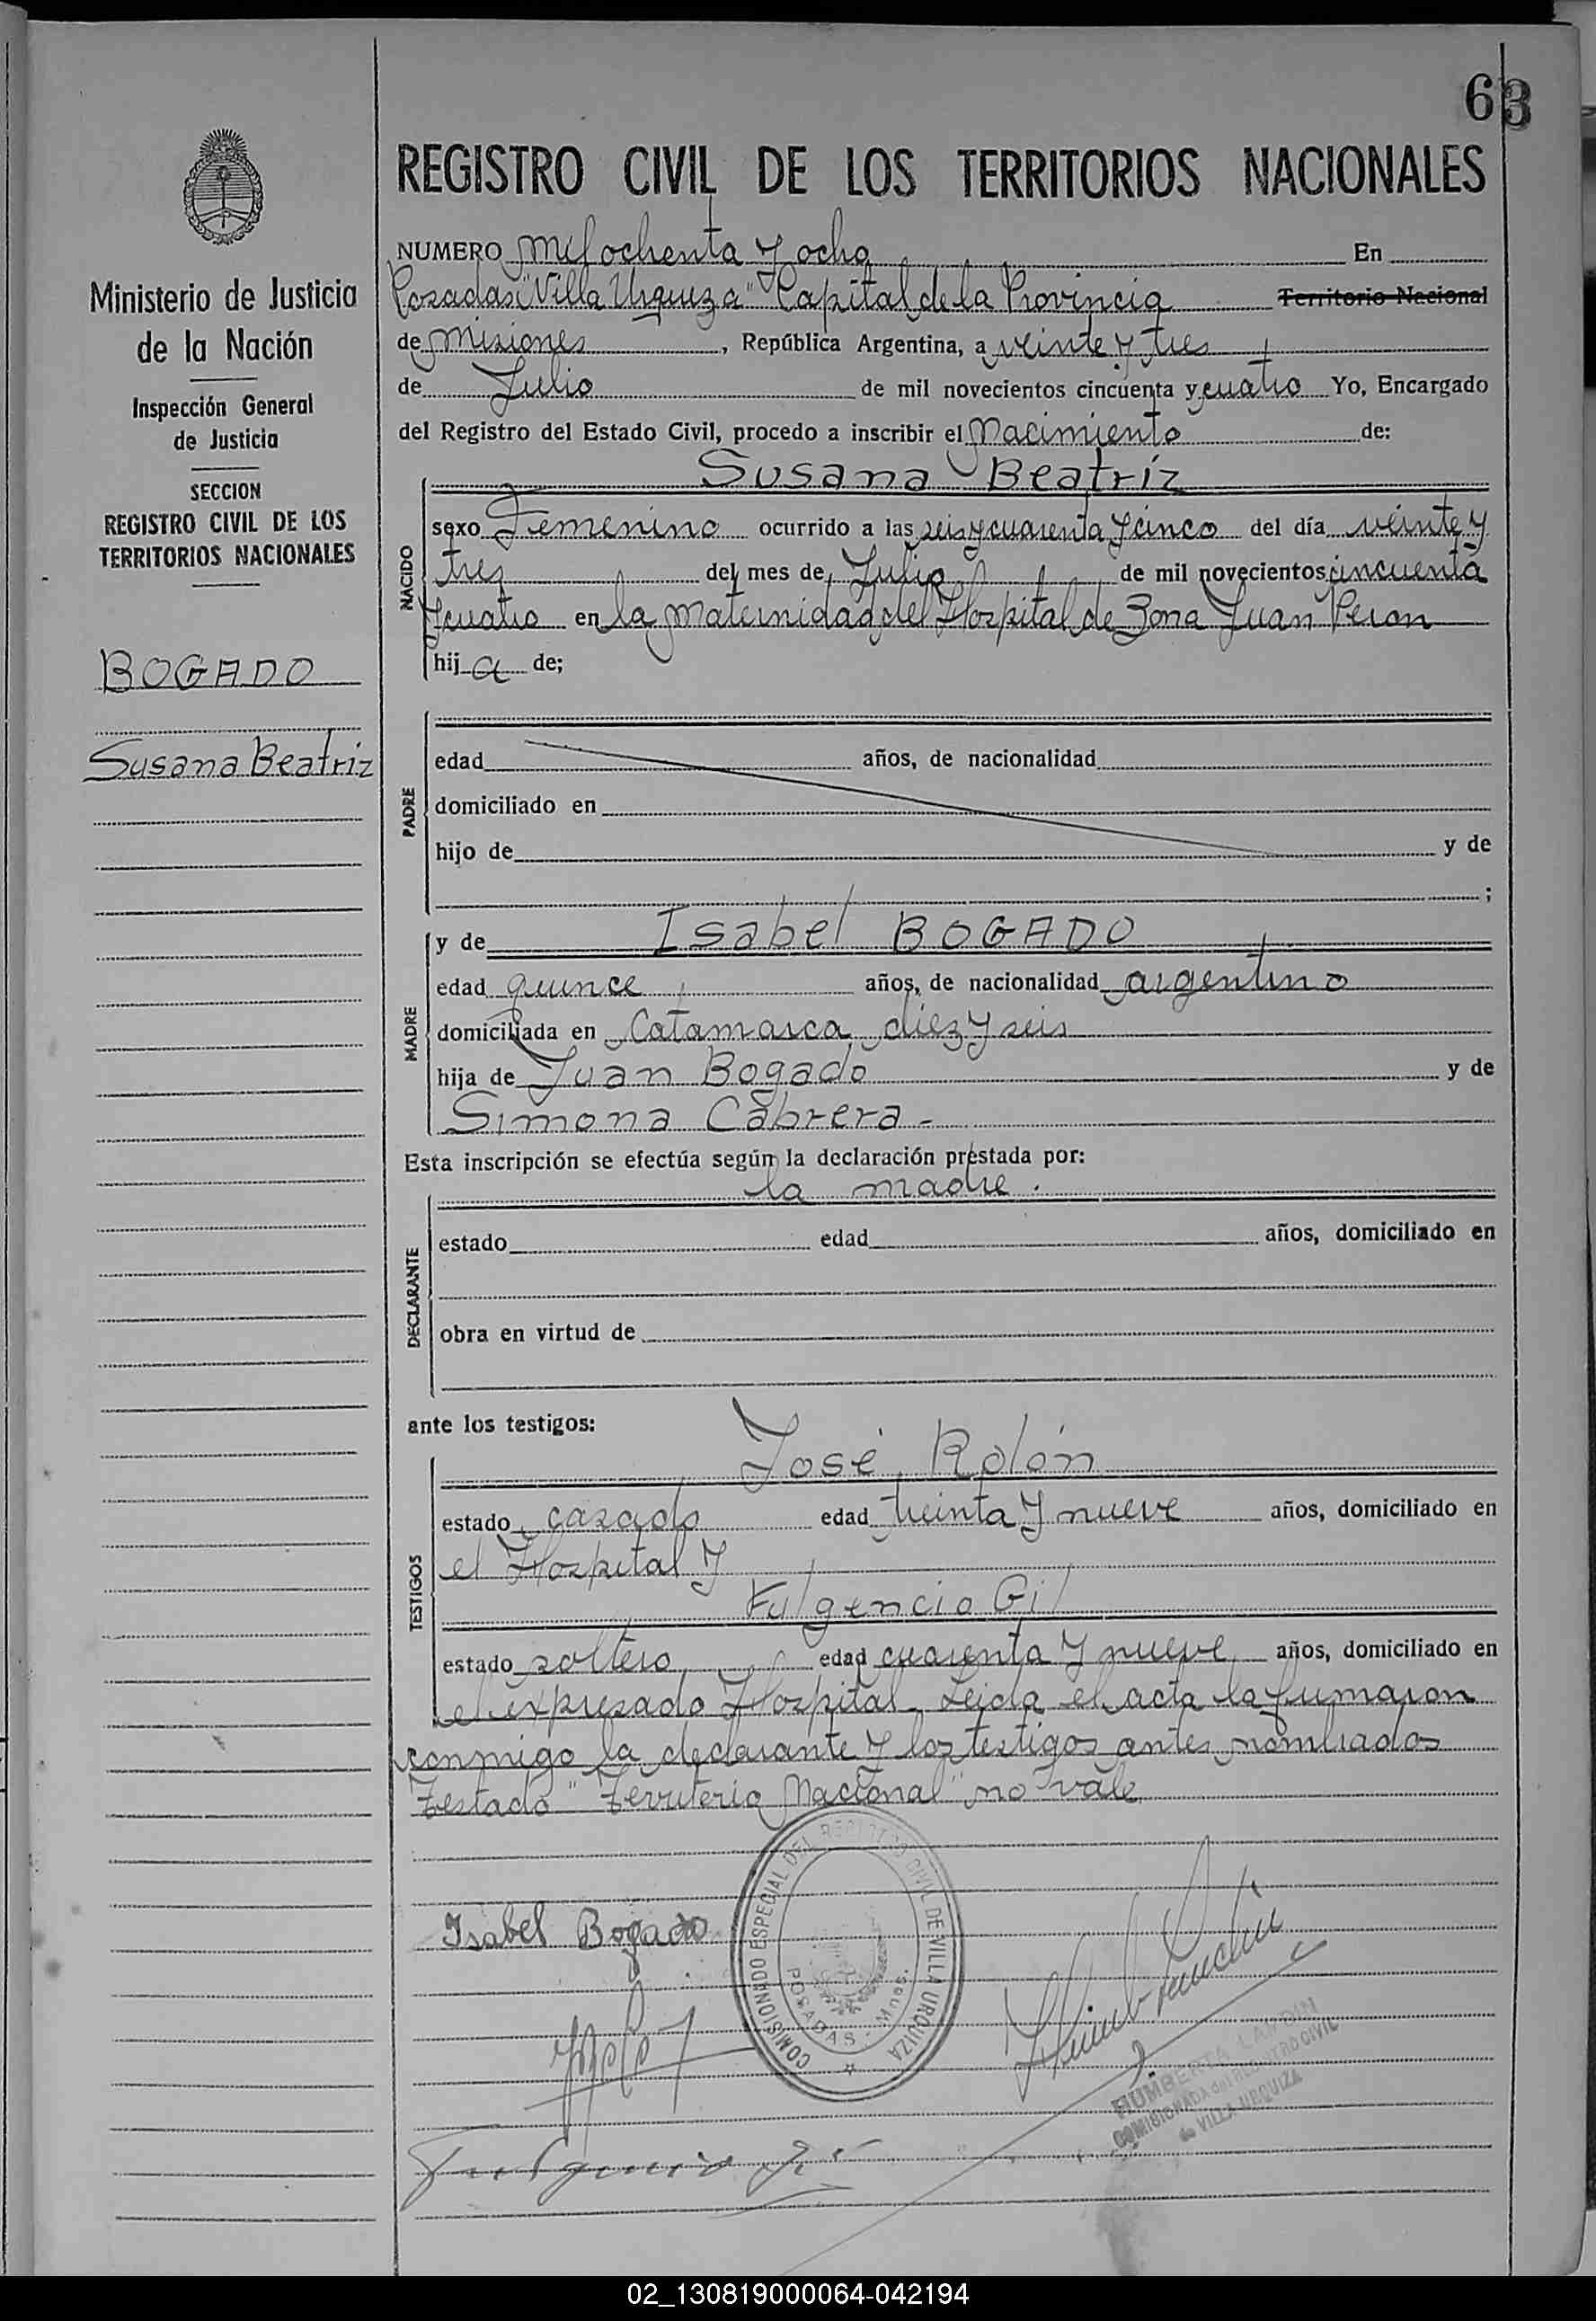 63
REGISTRO CIVIL DE LOS TERRITORIOS NACIONALES
NUMERO mil ochenta y ocho En
Posadas "Villa Urquiza" Capital de la Provincia Territorio Nacional
de Misiones, República Argentina, a veinte y tres
de Julio de mil novecientos cincuenta y cuatro Yo, Encargado
del Registro del Estado Civil, procedo a inscribir el Nacimiento de:
Susana Beatriz
NACIDO
sexo Femenino ocurrido a las seis y cuarenta y cinco del día veinte y
tres del mes de Julio de mil novecientos cincuenta
y cuatro en la Maternidad del Hospital de Zona Juan Peron
hija de;
PADRE
edad años, de nacionalidad
domiciliado en
hijo de y de
;
MADRE
y de Isabel BOGADO
edad quince años, de nacionalidad argentino
domiciliada en Catamarca diez y seis
hija de Juan Bogado y de
Simona Cabrera -
Esta inscripción se efectúa según la declaración prestada por:
la madre.
DECLARANTE
estado edad años, domiciliado en
obra en virtud de
ante los testigos:
José Rolón
TESTIGOS
estado casado edad treinta y nueve años, domiciliado en
el Hospital y
Fulgencio Gil
estado soltero edad cuarenta y nueve años, domiciliado en
el expresado Hospital. Leida el acta la firmaron
conmigo la declarante y los testigos antes nombrados
Testado "Territorio Nacional" no vale
Isabel Bogado
COMISIONADO ESPECIAL DEL REGISTRO CIVIL DE VILLA URQUIZA
POSADAS - Mnes.
HUMBERTA LANDIN
COMISIONADA del REGISTRO CIVIL
de VILLA URQUIZA
Fulgencio Gil
Ministerio de Justicia
de la Nación
Inspección General
de Justicia
SECCION
REGISTRO CIVIL DE LOS
TERRITORIOS NACIONALES
BOGADO
Susana Beatriz
02_130819000064-042194